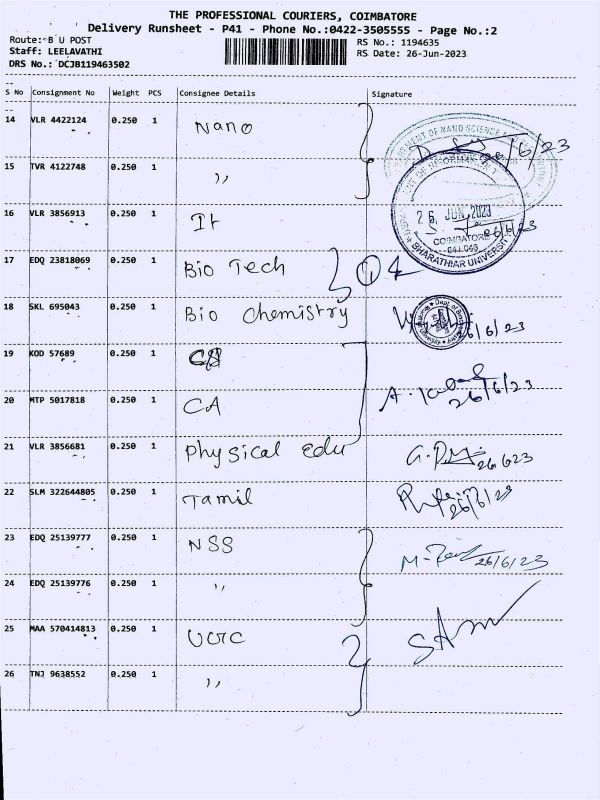 THE PROFESSIONAL COURIERS, COIMBATORE
Delivery Runsheet - P41 - Phone No.:0422-3505555 - Page No.:2
Route: B U POST
RS No.: 1194635
Staff: LEELAVATHI
RS Date: 26-Jun-2023
DRS No.: DCJB119463502
S No Consignment No Weight PCS Consignee Details Signature
14 VLR 4422124 0.250 1 Nano
15 TVR 4122748 0.250 1 ,,
16 VLR 3856913 0.250 1 It
17 EDQ 23818069 0.250 1 Bio Tech
18 SKL 695043 0.250 1 Bio Chemistry 26/6/23
19 KOD 57689 0.250 1
20 MTP 5017818 0.250 1 CA 26/6/23
21 VLR 3856681 0.250 1 Physical edu
22 SLM 322644805 0.250 1 Tamil 26/6/23
23 EDQ 25139777 0.250 1 NSS 26/6/23
24 EDQ 25139776 0.250 1 ,,
25 MAA 570414813 0.250 1 UGC
26 TNJ 9638552 0.250 1 ,,
26 JUN 2023
COIMBATORE
BHARATHIAR UNIVERSITY